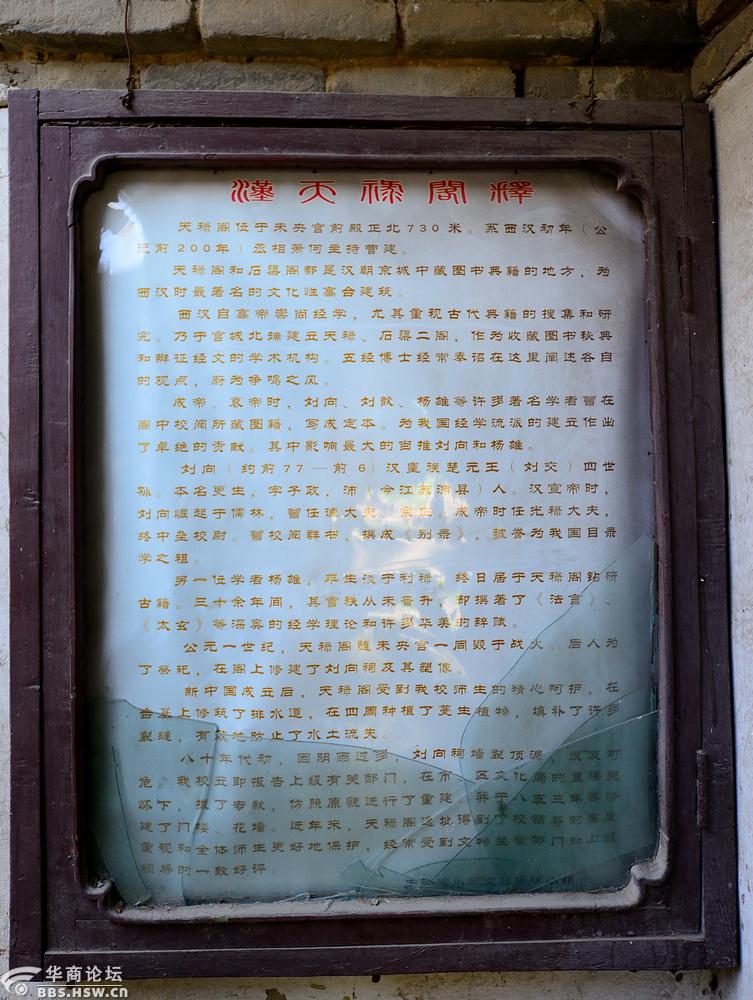 汉天禄阁释
天禄阁位于未央宫前殿正北730米。系西汉初年（公
元前200年）丞相萧何主持营建。
天禄阁和石渠阁都是汉朝京城中藏图书典籍的地方，为
西汉时最著名的文化性高台建筑。
西汉自高帝崇尚经学，尤其重视古代典籍的搜集和研
究。乃于宫城北端建立天禄、石渠二阁，作为收藏图书秘典
和辩证经文的学术机构。五经博士经常奉诏在这里阐述各自
的观点，蔚为争鸣之风。
成帝、哀帝时，刘向、刘歆、杨雄等许多著名学者曾在
阁中校阅所藏图籍，写成定本。为我国经学流派的建立作出
了卓绝的贡献。其中影响最大的当推刘向和杨雄。
刘向（约前77—前6）汉皇族楚元王（刘交）四世
孙。本名更生，字子政，沛（今江苏沛县）人。汉宣帝时，
刘向崛起于儒林，曾任谏大夫、宗正。成帝时任光禄大夫，
终中垒校尉。曾校阅群书，撰成《别录》，被誉为我国目录
学之祖。
另一位学者杨雄，平生淡于利禄，终日居于天禄阁钻研
古籍。三十余年间，其官秩从未晋升，却撰著了《法言》、
《太玄》等深奥的经学理论和许多华美的辞赋。
公元一世纪，天禄阁随未央宫一同毁于战火。后人为
了祭祀，在阁上修建了刘向祠及其塑像。
新中国成立后，天禄阁受到我校师生的精心呵护，在
台基上修筑了排水道，在四周种植了蔓生植物，填补了许多
裂缝，有效地防止了水土流失。
八十年代初，因阴雨过多，刘向祠墙裂顶漏，岌岌可
危。我校立即报告上级有关部门，在市、区文化局的直接关
怀下，拨了专款，仿照原貌进行了重建，并于八五三年
建了门楼、花墙。近年来，天禄阁遗址得到了校领导的高度
重视和全体师生更好地保护，经常受到文物主管部门和上级
领导的一致好评。
华商论坛
BBS.HSW.CN